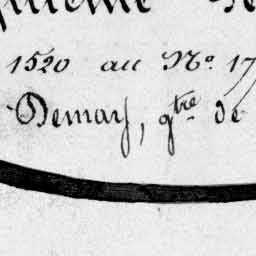 1520 au Nº 17
Demary, gtre de